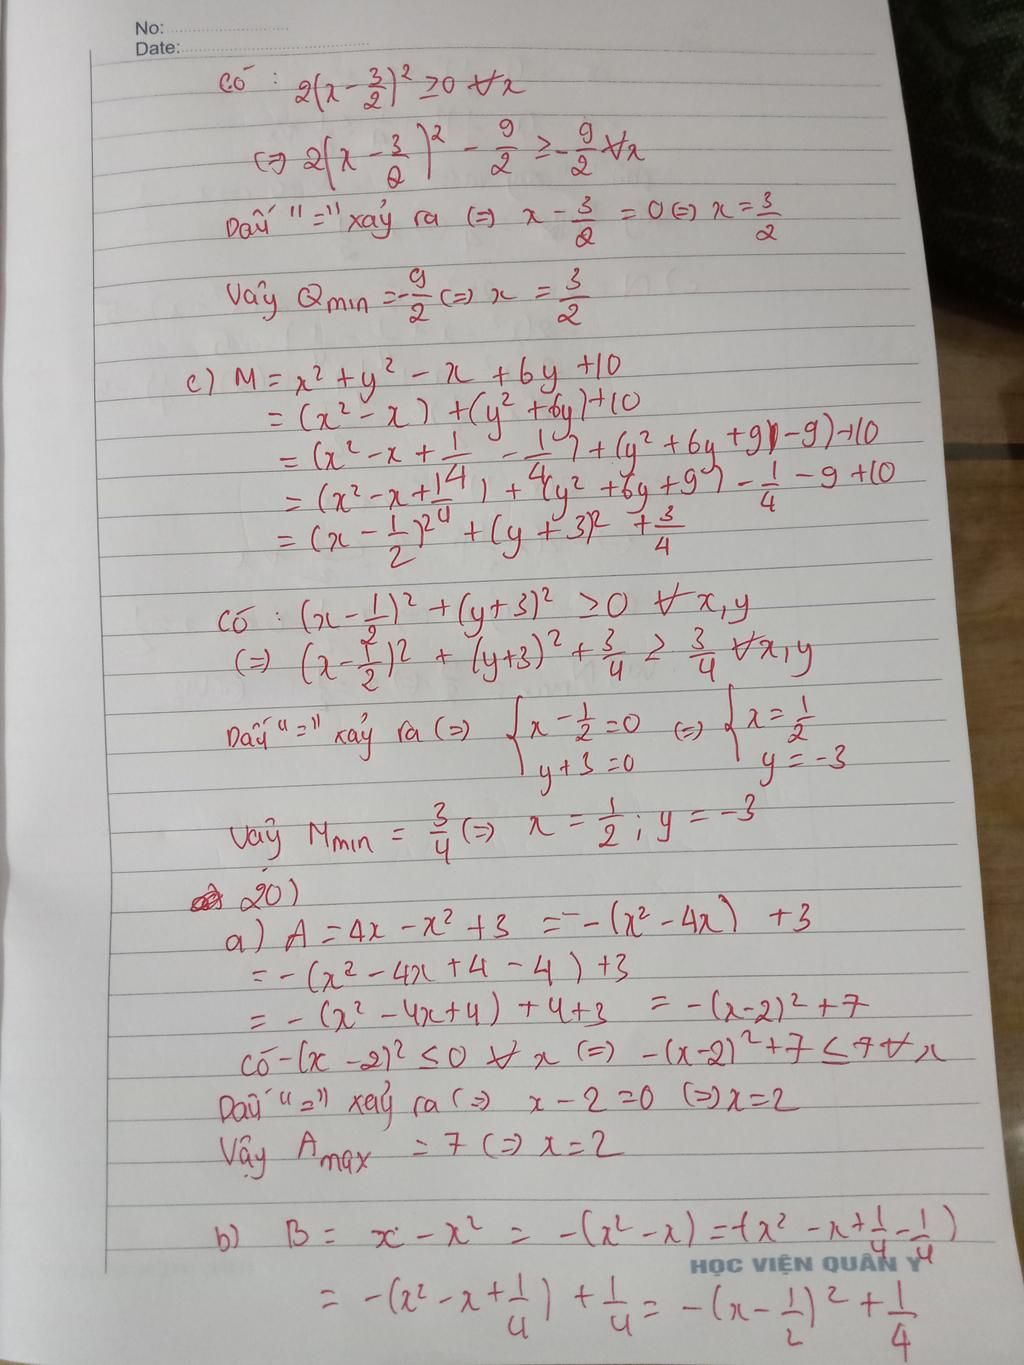 No:
Date:
Có : 2(x - 3/2)² ≥ 0 ∀x
(=) 2(x - 3/2)² - 9/2 ≥ - 9/2 ∀x
Dấu "=" xảy ra (=) x - 3/2 = 0 (=) x = 3/2
Vậy Qmin = - 9/2 (=) x = 3/2
c) M = x² + y² - x + 6y + 10
= (x² - x) + (y² + 6y) + 10
= (x² - x + 1/4 - 1/4) + (y² + 6y + 9 - 9) + 10
= (x² - x + 1/4) + (y² + 6y + 9) - 1/4 - 9 + 10
= (x - 1/2)² + (y + 3)² + 3/4
Có : (x - 1/2)² + (y + 3)² ≥ 0 ∀x, y
(=) (x - 1/2)² + (y + 3)² + 3/4 ≥ 3/4 ∀x, y
Dấu "=" xảy ra (=) { x - 1/2 = 0 (=) { x = 1/2
y + 3 = 0 y = -3
Vậy Mmin = 3/4 (=) x = 1/2 ; y = -3
20)
a) A = 4x - x² + 3 = -(x² - 4x) + 3
= -(x² - 4x + 4 - 4) + 3
= -(x² - 4x + 4) + 4 + 3 = -(x - 2)² + 7
Có -(x - 2)² ≤ 0 ∀x (=) -(x - 2)² + 7 ≤ 7 ∀x
Dấu "=" xảy ra (=) x - 2 = 0 (=) x = 2
Vậy Amax = 7 (=) x = 2
b) B = x - x² = -(x² - x) = -(x² - x + 1/4 - 1/4)
HỌC VIỆN QUÂN Y
= -(x² - x + 1/4) + 1/4 = -(x - 1/2)² + 1/4